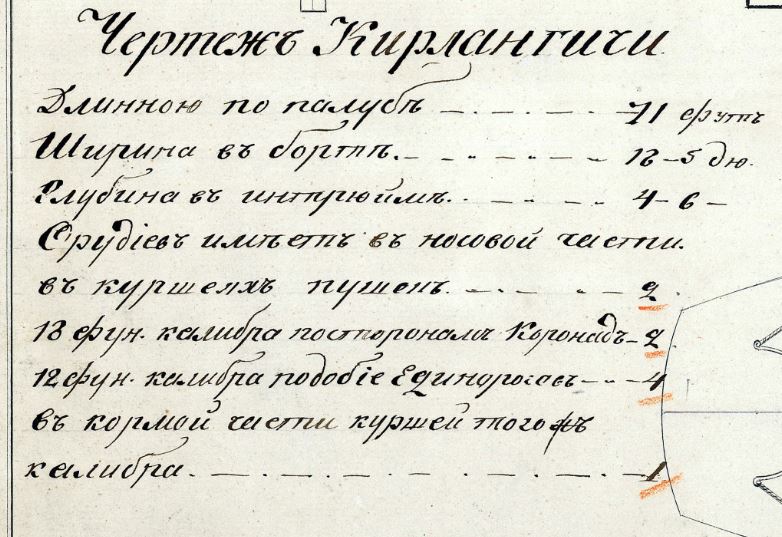 Чертежъ Кирлангичи
Длинною по палубѣ — . — . — . — 71 футъ
Ширина въ бортѣ. — .. — .. — .. — 12 – 5 дю.
Глубина въ интрюймѣ. .. — .. — .. 4 – 6 –
Орудіевъ имѣетъ въ носовой части.
въ куршеяхъ пушекъ. — .. — .. — 2.
18 фун. калибра постороналъ Коронадъ – 2.
12 фун. калибра подобіе Единороговъ – .. – 4
въ кормой части куршей того жъ
калибра. — . — . — . — . — . — . — 1